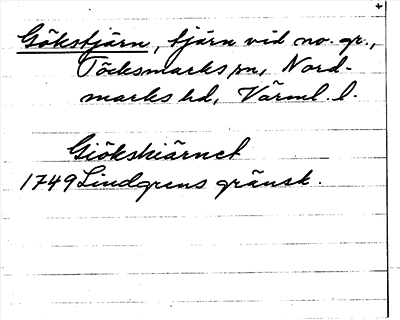 Gökstjärn, tjärn vid no. gr.,
Töcksmarks sn, Nord-
marks hd, Värml. l.
Giökskiärnet
1749 Lindgrens gränsk.